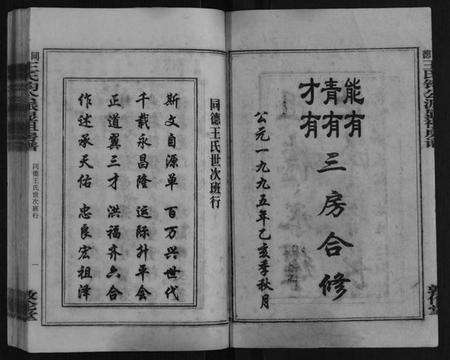 能有
青有
才有
三房合修
公元一九九五年乙亥季秋月
同德王氏世次班行
斯文自源单　百万兴世代
千载永昌隆　运际升平会
正道冀三才　洪福齐六合
作述承天佑　忠良宏祖泽
同德王氏世次班行
一